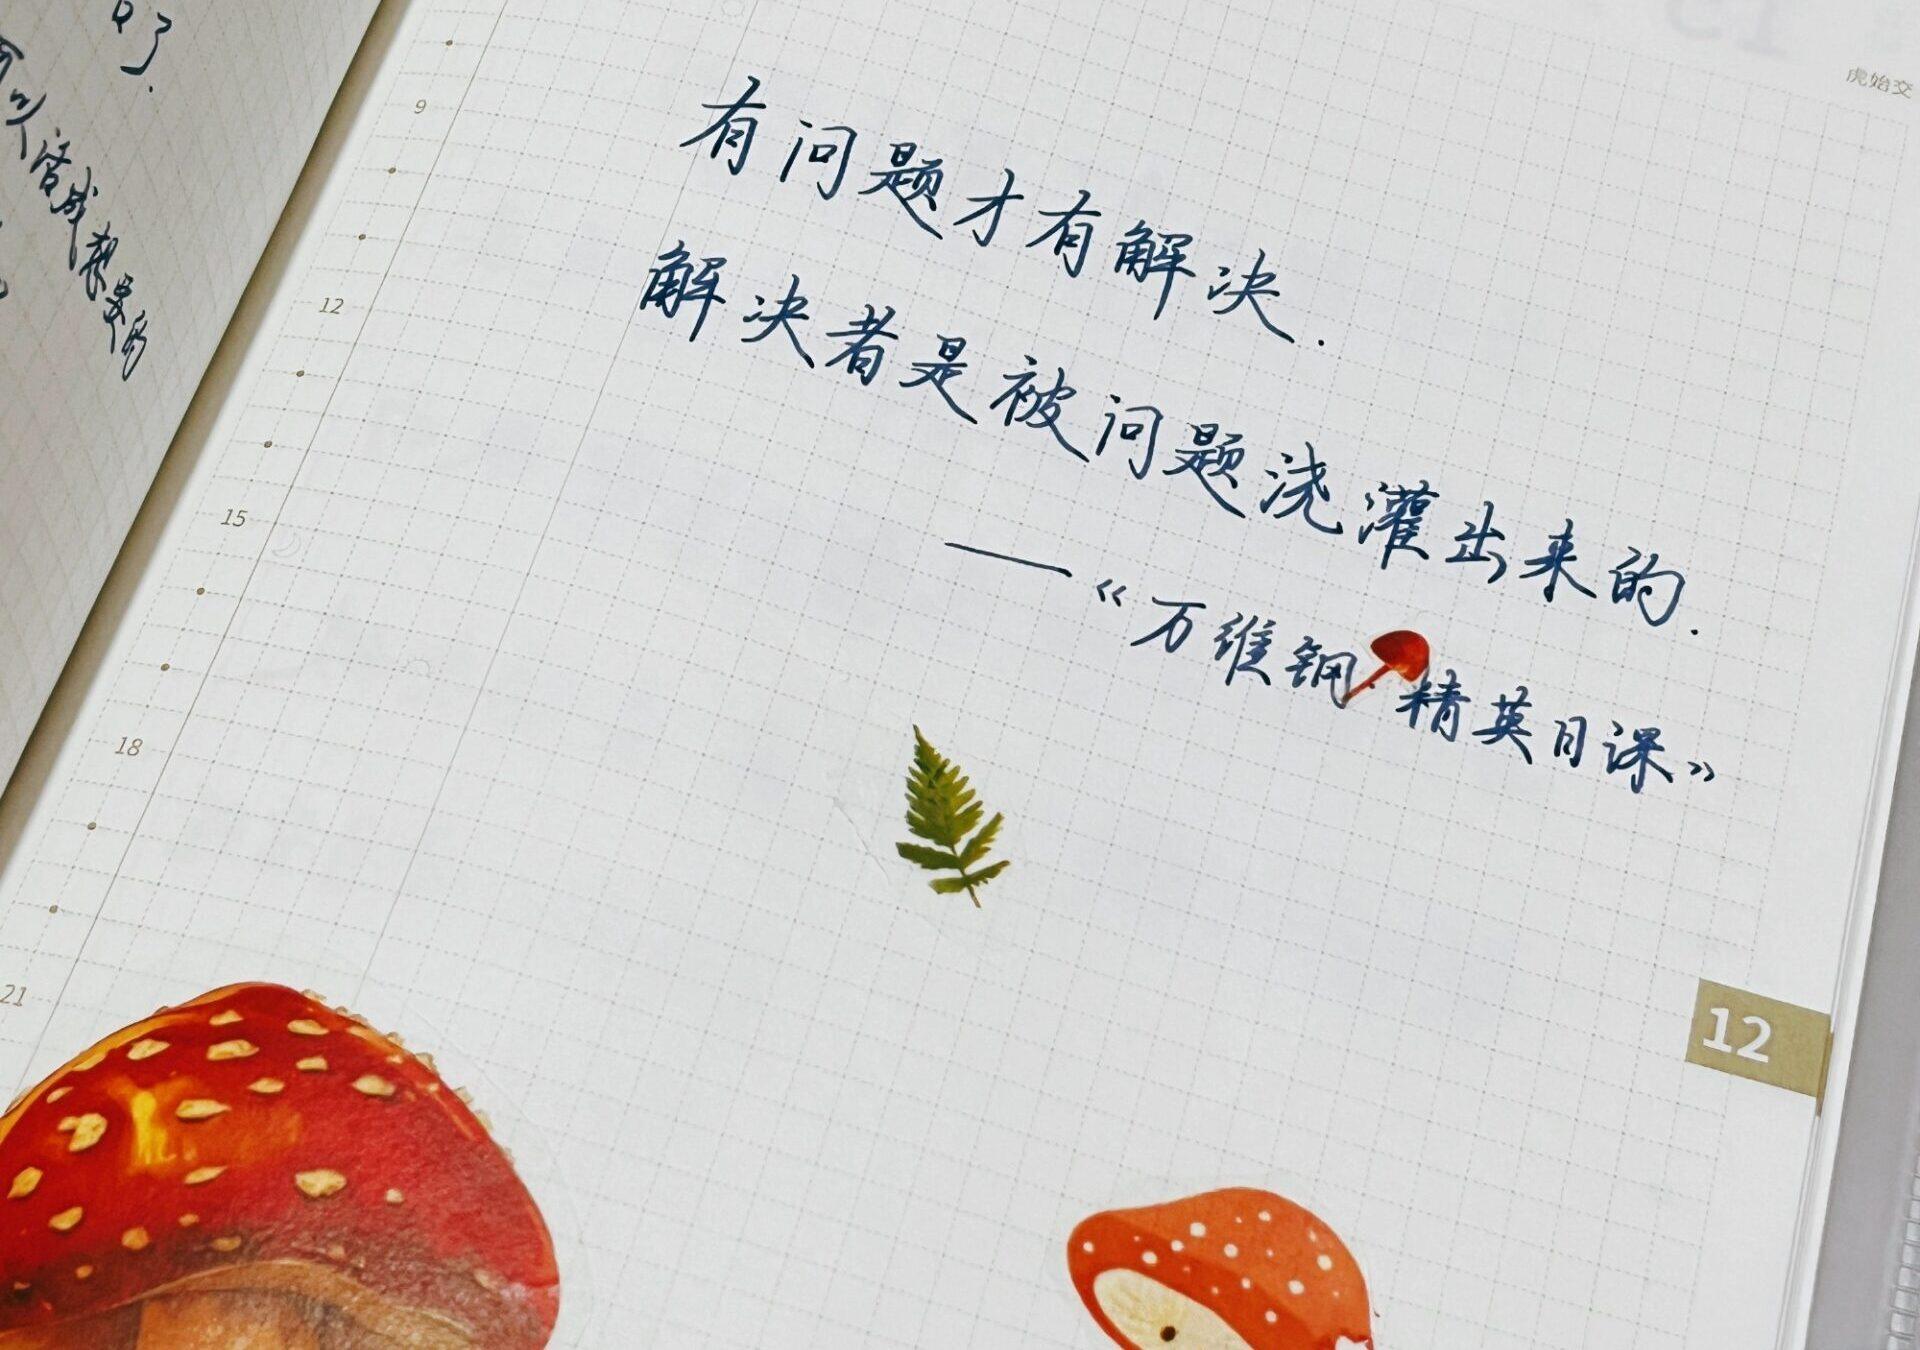 了.
9
12
15
18
21
有问题才有解决.
解决者是被问题浇灌出来的.
——《万维钢·精英日课》
虎始交
12